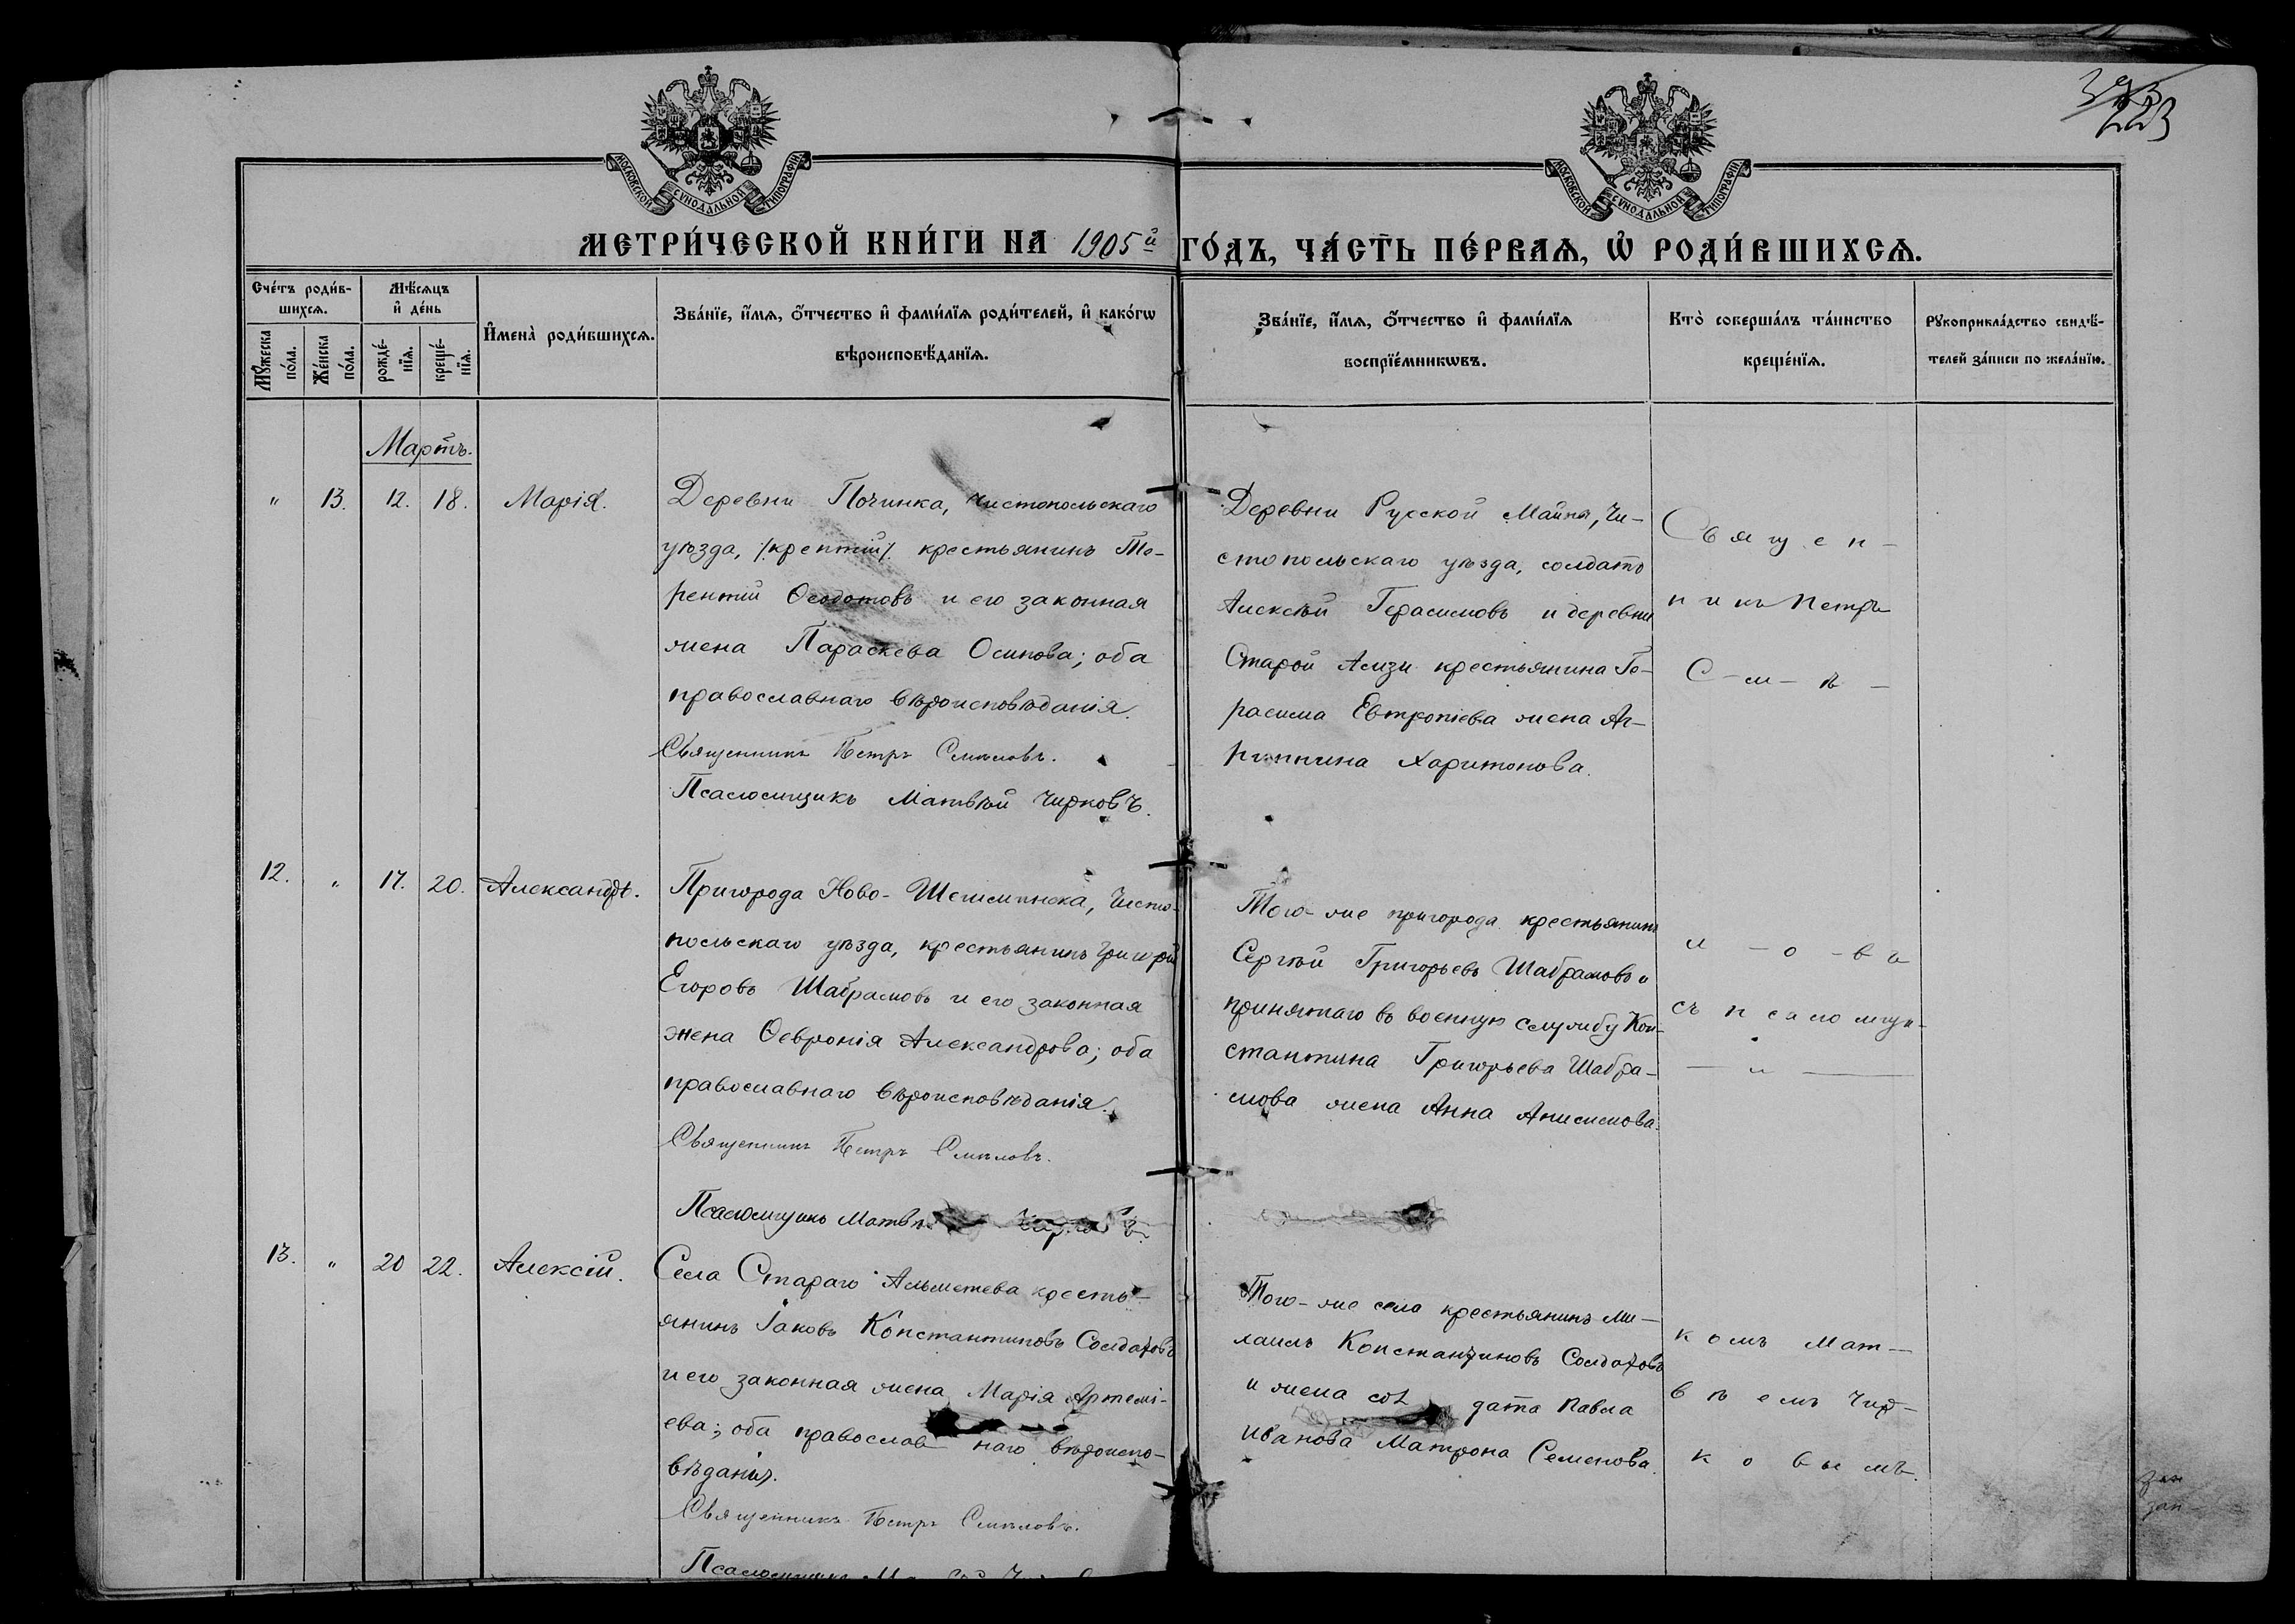 223
МОСКОВСКОЙ СѴНОДАЛЬНОЙ ТИПОГРАФІИ
МОСКОВСКОЙ СѴНОДАЛЬНОЙ ТИПОГРАФІИ
МЕТРИ́ЧЕСКОЙ КНИ́ГИ НА 1905й ГО́ДЪ, ЧА́СТЬ ПЕ́РВАѦ, Ѽ РОДИ́ВШИХСѦ.
Сче́тъ роди́в-
шихсѧ.
Мꙋ́жеска по́ла.
Же́нска по́ла.
Мѣ́сѧцъ
и҆ де́нь
рожде́-
нїѧ.
креще́-
нїѧ.
И҆мена̀ роди́вшихсѧ.
Зва́нїе, и҆́мѧ, ѻ҆́тчество и҆ фами́лїѧ роди́телей, и҆ како́гѡ
вѣроисповѣ́данїѧ.
Зва́нїе, и҆́мѧ, ѻ҆́тчество и҆ фами́лїѧ
воспрїе́мникѡвъ.
Кто̀ соверша́лъ та́инство
креще́нїѧ.
Рꙋкоприкла́дство свидѣ́-
телей за́писи по жела́нїю.
Мартъ.
" 13. 12. 18. Марія.
Деревни Починка, Чистопольскаго
уѣзда, крестьянинъ Те-
рентій Ѳеодотовъ и его законная
жена Параскева Осипова; оба
православнаго вѣроисповѣданія.
Священникъ Петръ Смѣловъ.
Псаломщикъ Матвѣй Чирковъ.
Деревни Русской Майны, Чи-
стопольскаго уѣзда, солдатъ
Алексѣй Герасимовъ и деревни
Старой крестьянина Ге-
расима Евтропіева жена Аг-
риппина Харитонова.
Священ-
никъ Петръ
С-м-ѣ-
12. " 17. 20. Александръ.
Пригорода Ново-Шешминска, Чисто-
польскаго уѣзда, крестьянинъ Григорій
Егоровъ Шабрамовъ и его законная
жена Ѳевронія Александрова; оба
православнаго вѣроисповѣданія.
Священникъ Петръ Смѣловъ.
Псаломщикъ Матвѣй Чирковъ.
Того-же пригорода крестьянинъ
Сергѣй Григорьевъ Шабрамовъ и
принятаго въ военную службу Кон-
стантина Григорьева Шабра-
мова жена Анна Анисимова.
л-о-въ
съ псаломщи-
13. " 20 22. Алексій.
Села Стараго Альметева кресть-
янинъ Іаковъ Константиновъ Солдатовъ
и его законная жена Марія Артемі-
ева; оба православнаго вѣроиспо-
вѣданія.
Священникъ Петръ Смѣловъ.
Того-же села крестьянинъ Ми-
хаилъ Константиновъ Солдатовъ
и жена солдата Павла
Иванова Матрона Семенова.
комъ Мат-
вѣемъ Чир-
ковымъ.